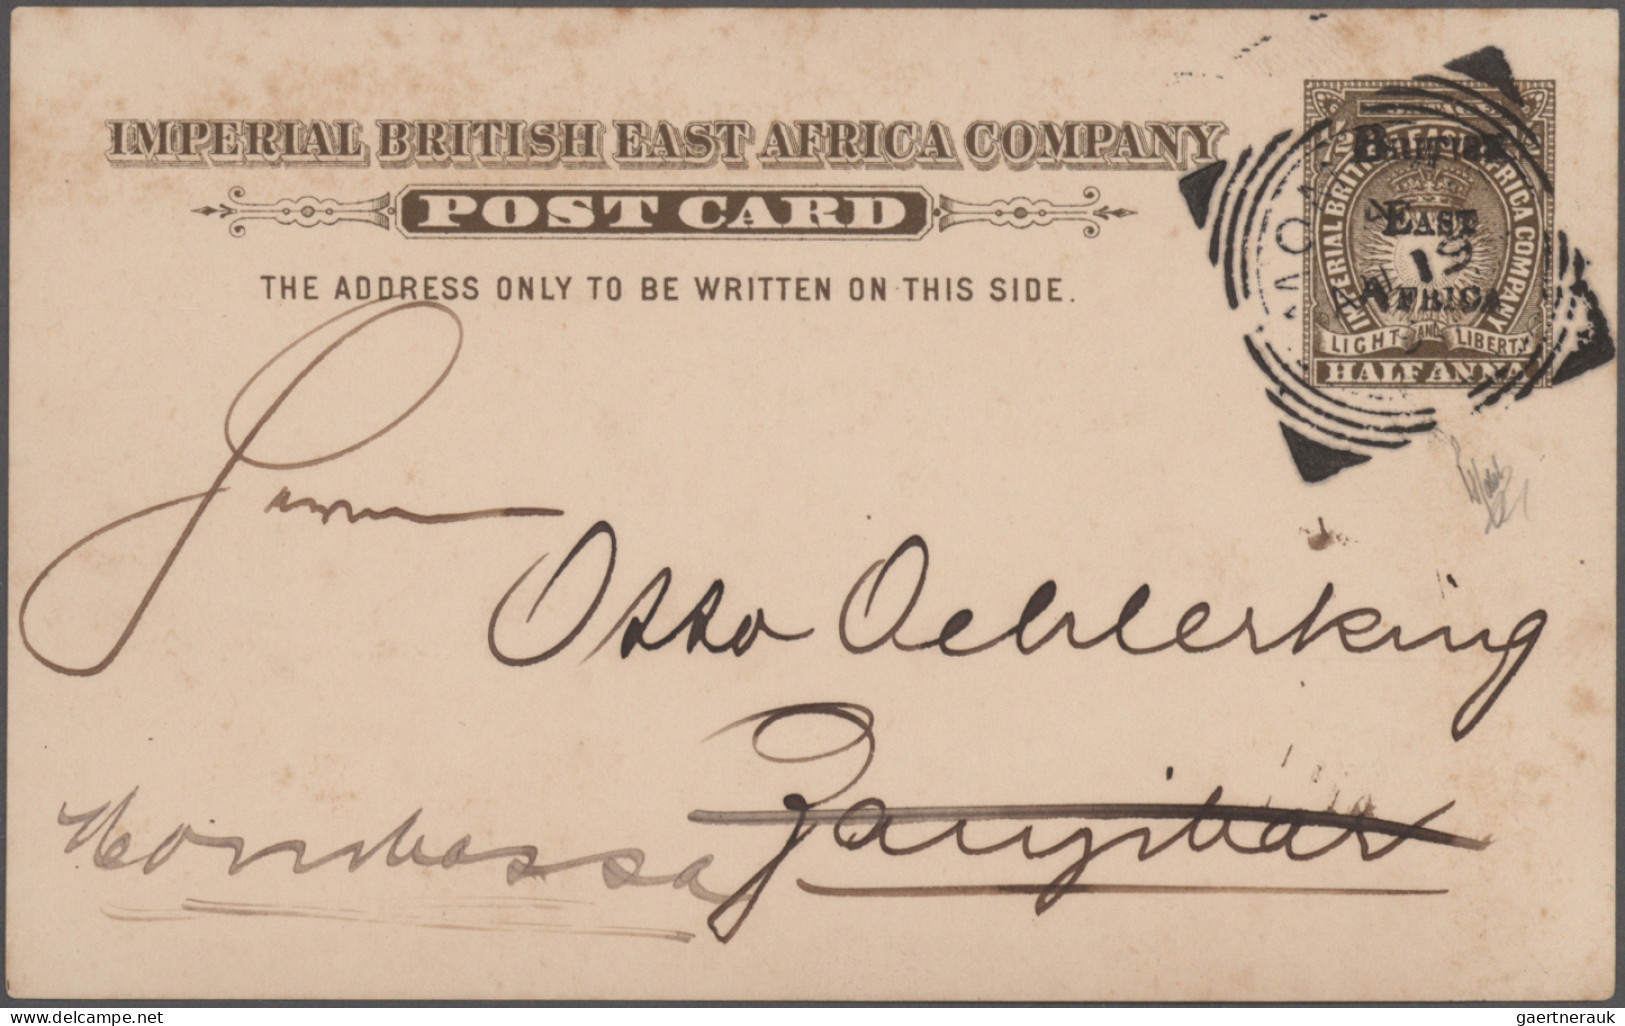 IMPERIAL BRITISH EAST AFRICA COMPANY
POST CARD
THE ADDRESS ONLY TO BE WRITTEN ON THIS SIDE.
IMPERIAL BRITISH EAST AFRICA COMPANY
BRITISH
EAST
AFRICA
LIGHT AND LIBERTY
HALF ANNA
19
Herrn
Otto Oehlerking
Zanzibar
Mombassa
gaertnerauk